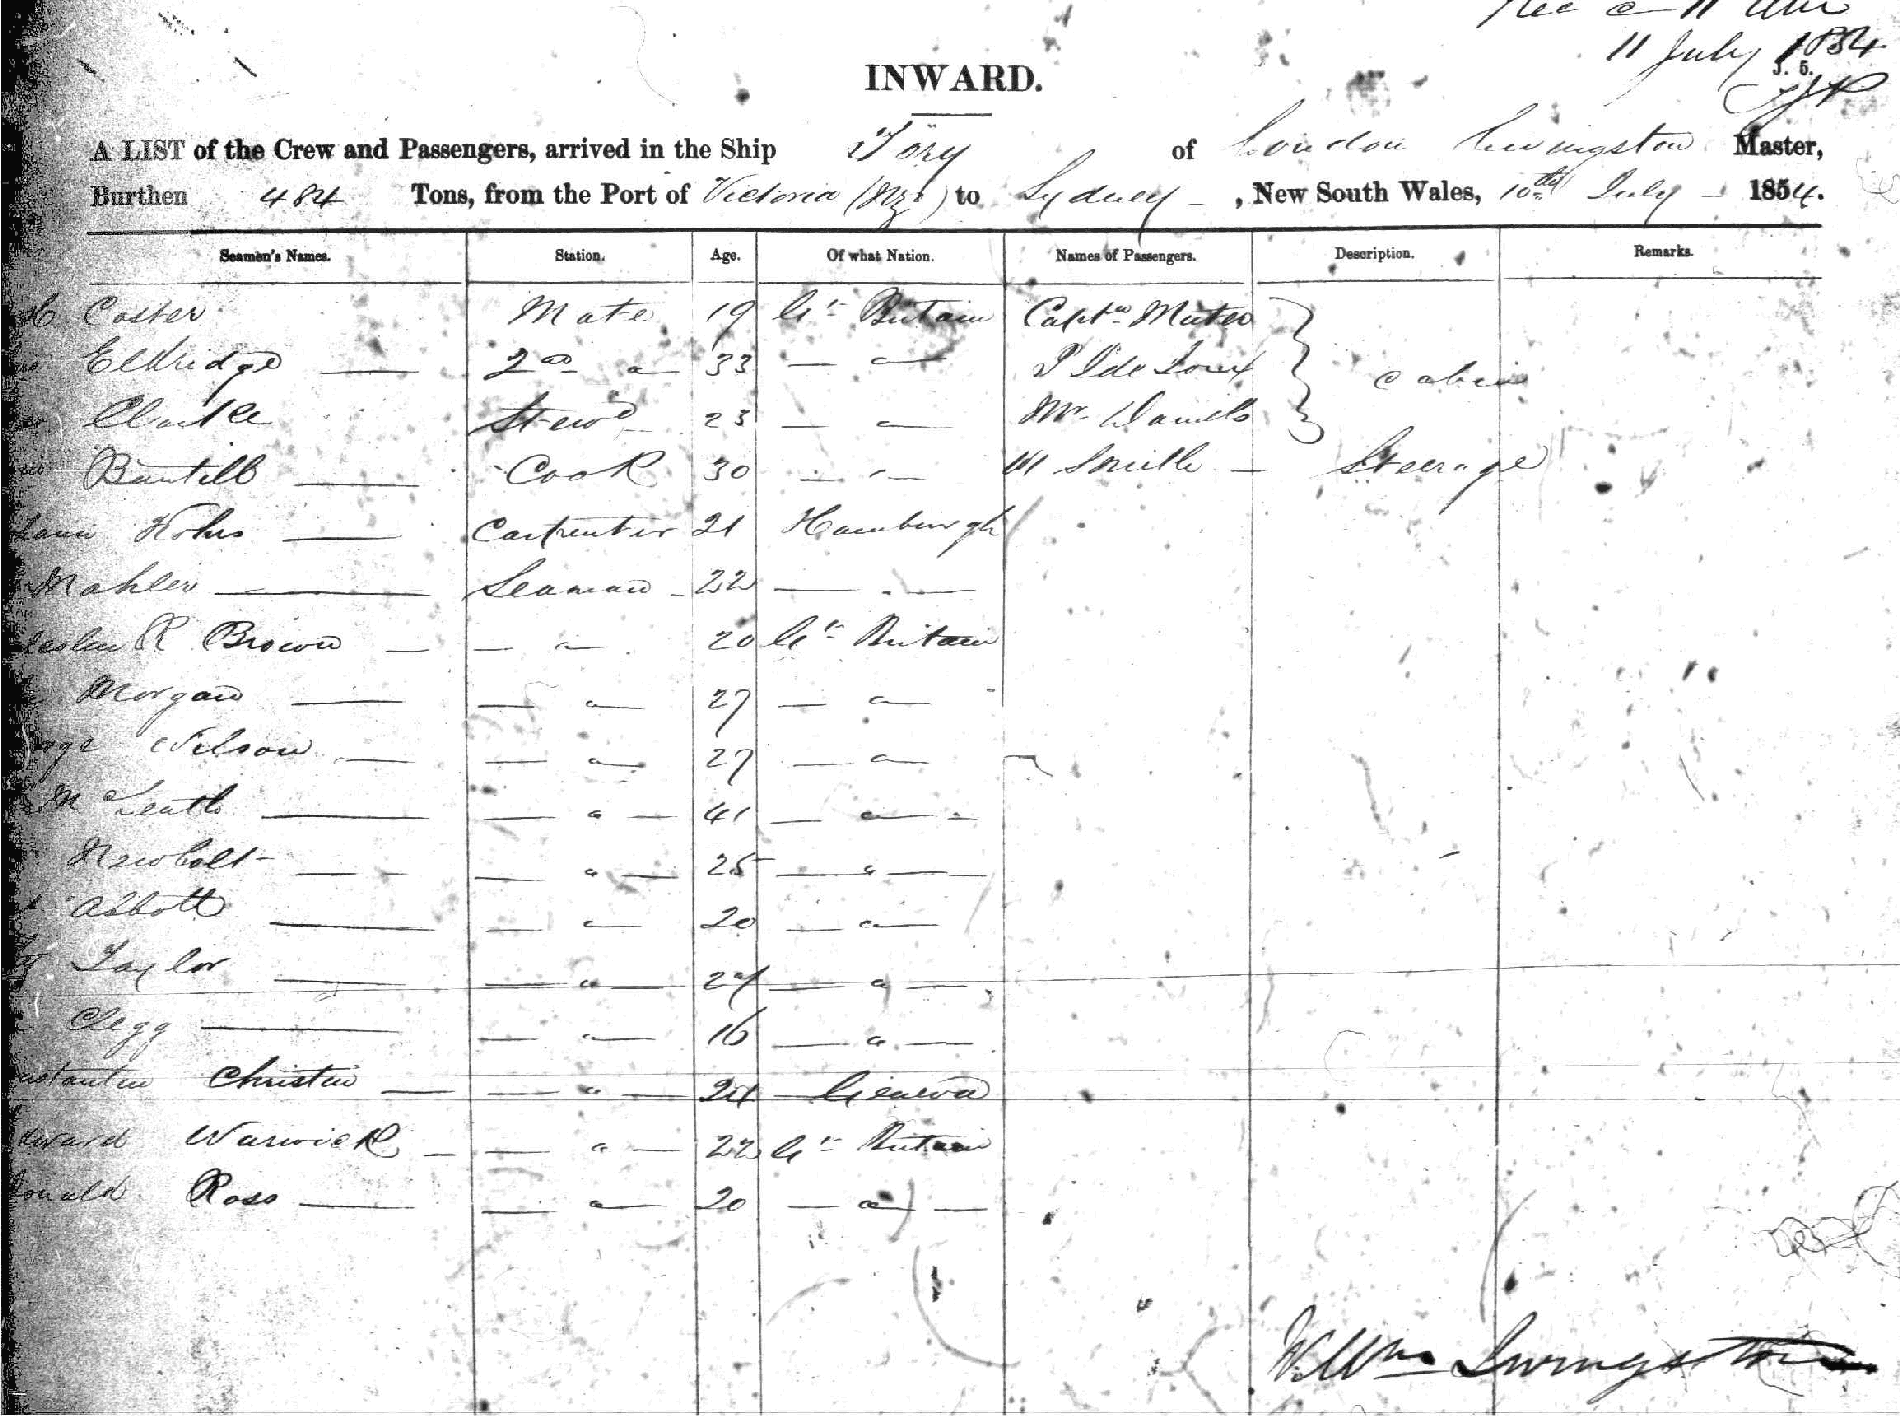 11 July 1854
J. 5.
INWARD.
A LIST of the Crew and Passengers, arrived in the Ship Tory of London Livingston Master,
Burthen 484 Tons, from the Port of Victoria to Sydney, New South Wales, 10th July 1854.
Seamen's Names. Station. Age. Of what Nation. Names of Passengers. Description. Remarks.
Coster Mate 19 Gt Britain Captn
Eldridge 2nd " 33 "
Clarke Stewd 23 " Mr Daniels Cabin
Cook 30 " Smith Steerage
Carpenter 21 Hamburgh
Mahler Seaman 22 "
R Brown " 20 Gt Britain
Morgan " 27 "
Nelson " 27 "
" 41 "
Newbolt " 25 "
Abbott " 20 "
Taylor " 24 "
Clegg " 16 "
Christin " 24 Geneva
Warwick " 22 Gt Britain
Ross " 20 "
Livingston